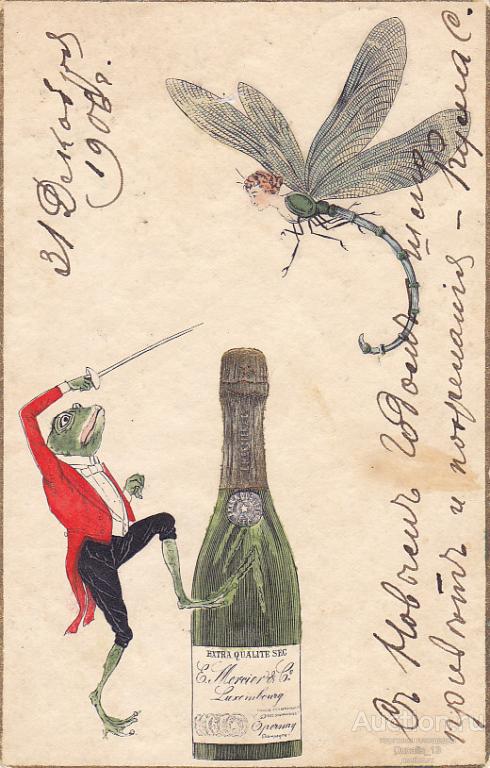 31 Декабря
1908 г.
Съ Новымъ годомъ шлю
привѣтъ и пожеланія — Кума С.
EXTRA QUALITÉ SEC
E. Mercier & Cº
Luxembourg
Epernay
Champagne
Auction.ru